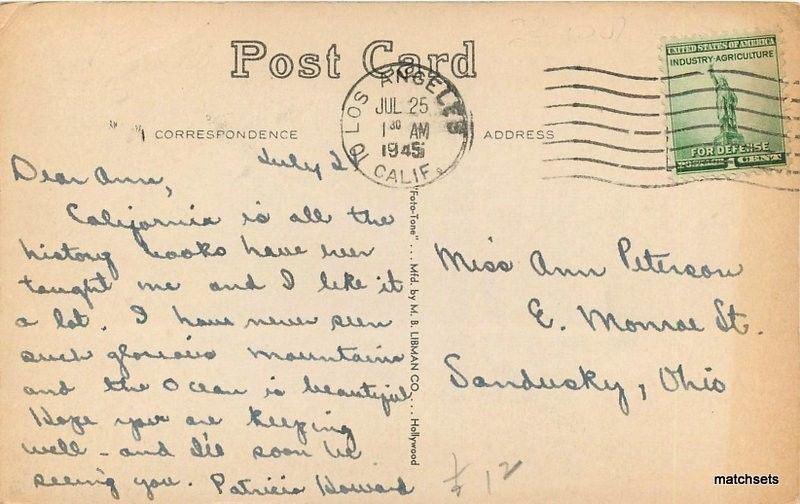 Post Card
LOS ANGELES
JUL 25
1 30 AM
1945
CALIF.
UNITED STATES OF AMERICA
INDUSTRY-AGRICULTURE
FOR DEFENSE
1 CENT
CORRESPONDENCE
ADDRESS
July 24
Dear Ann,
California is all the
history books have ever
taught me and I like it
a lot. I have never seen
such glorious mountains
and the Ocean is beautiful
Hope your are keeping
well - and I'll soon be
seeing you. Patricia Howard
"Foto-Tone" ... Mfd. by M. B. LIBMAN CO. ... Hollywood
Miss Ann Peterson
E. Monroe St.
Sandusky, Ohio
$12
matchsets